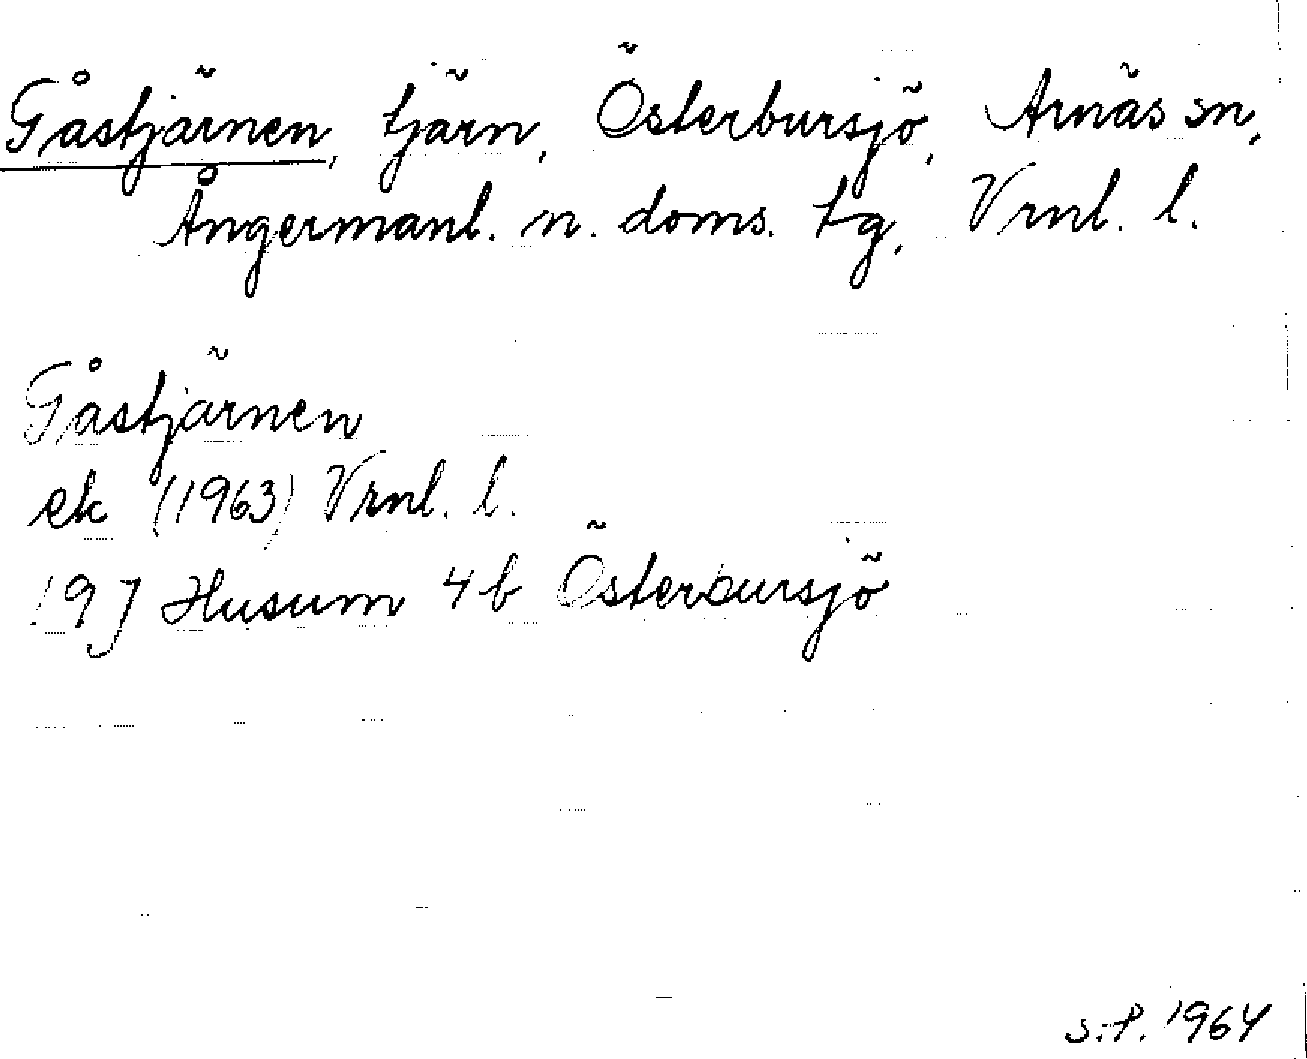 Gåstjärnen, tjärn, Österbursjö, Arnäs sn,
Ångermanl. n. doms. tg, Vrnl. l.
Gåstjärnen
ek (1963) Vrnl. l.
19 J Husum 4 b Österbursjö
S.P. 1964